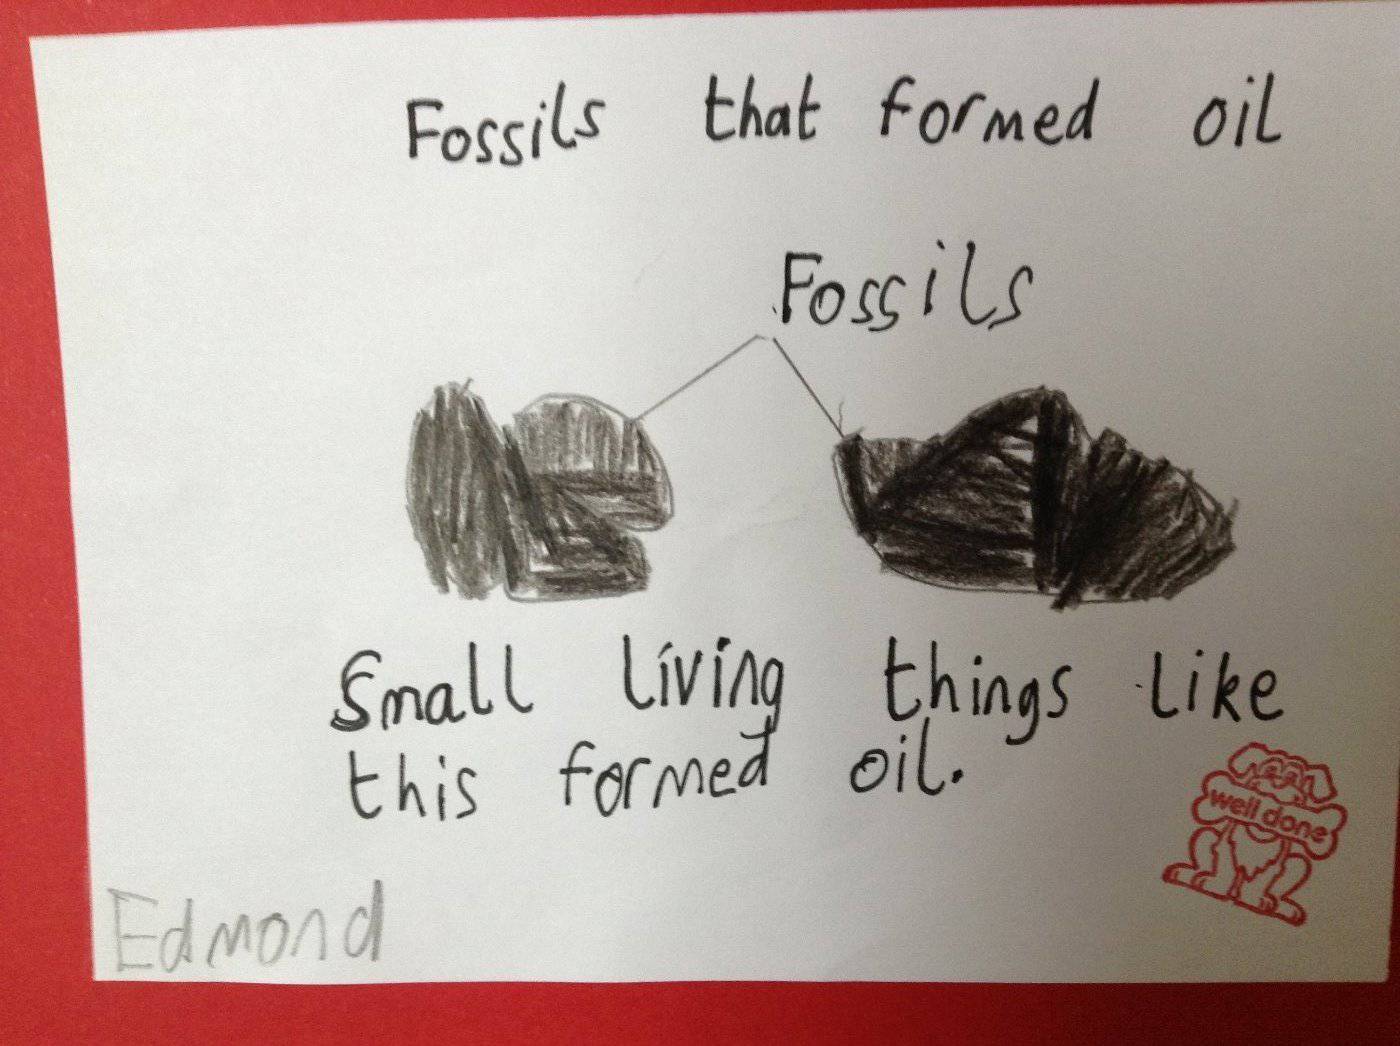 Fossils that formed oil
Fossils
Small living things like
this formed oil.
well done
Edmond